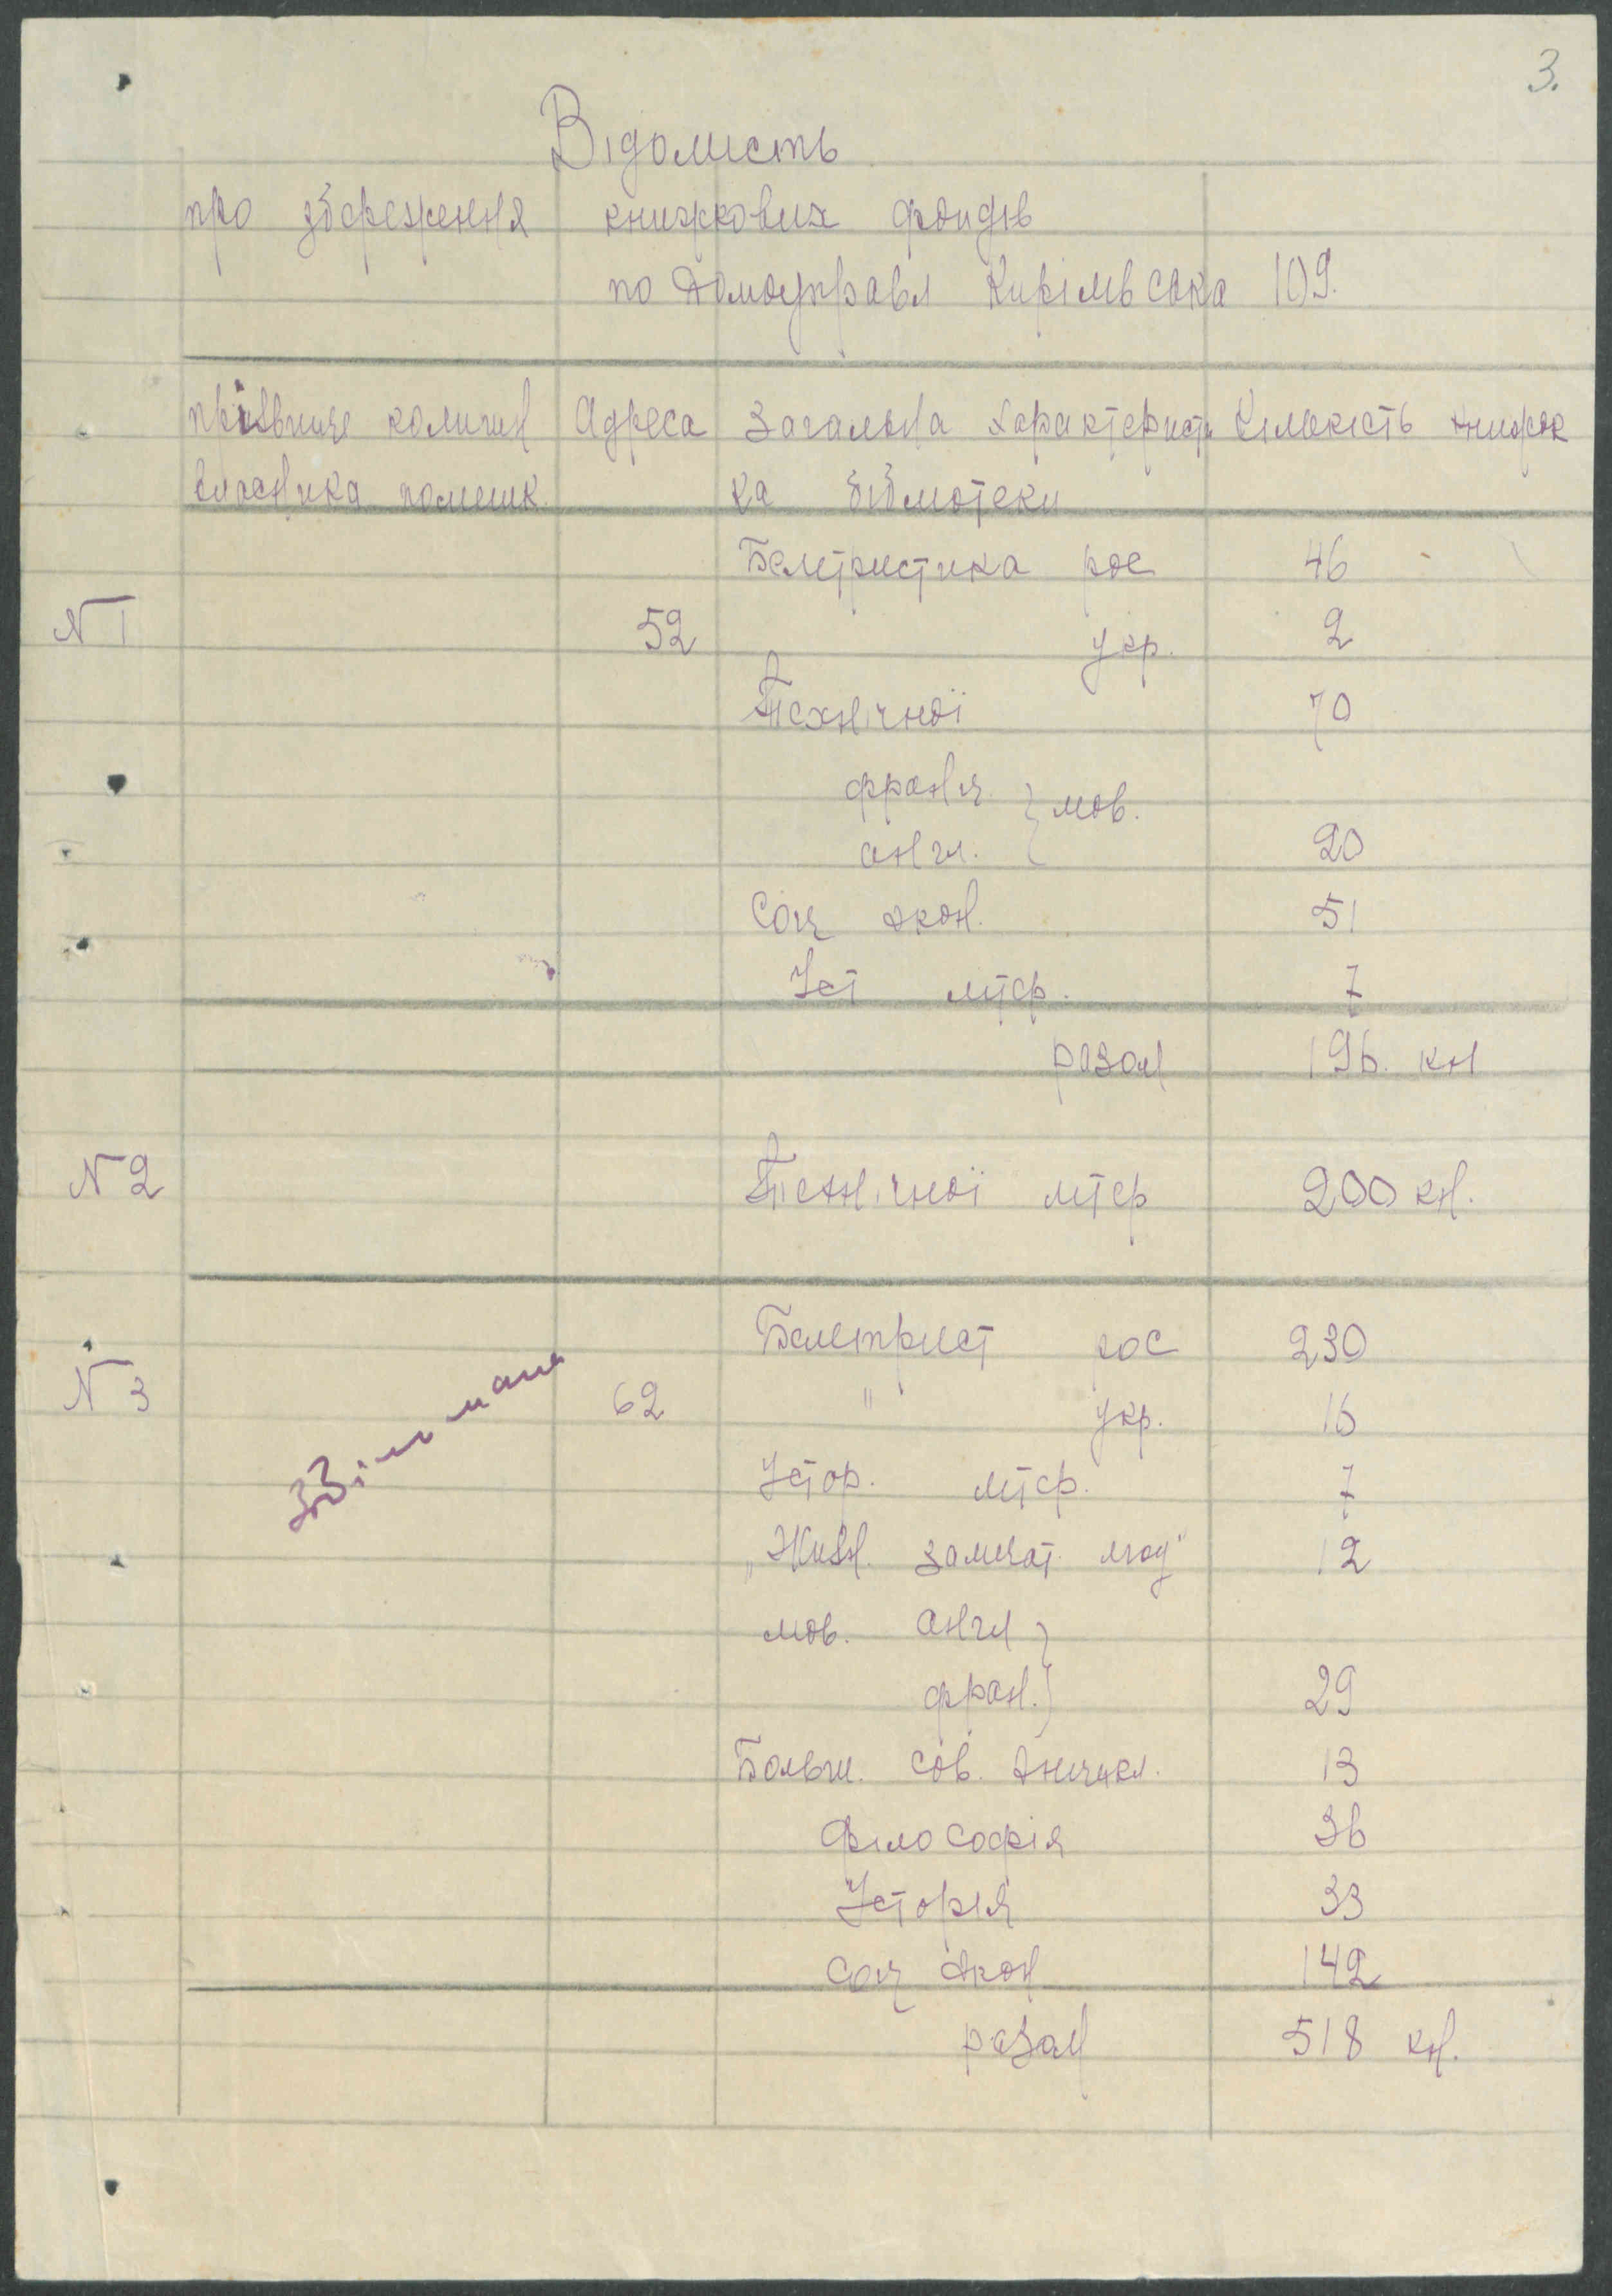 3.
Відомість
про збереження книжкових фондів
по Домоуправл Кирілівська 109.
прізвище колишн Адреса Загальна характеристи Кількість книжок
власника помешк. ка бібліотеки
Белетристика рос 46
N 1 52 укр. 2
Технічної 70
франц. } мов.
англ. 20
Соц екон. 51
Іст літер. 7
разом 196. кн
N 2 Технічної літер 200 кн.
Белетрист рос 230
N 3 62 " укр. 16
Істор. літер. 7
„Жизн. замечат. люд" 12
мов. англ }
фран. } 29
Больш. Сов. Энцикл. 13
Філософія 36
Історія 33
Соц екон 142
разом 518 кн.